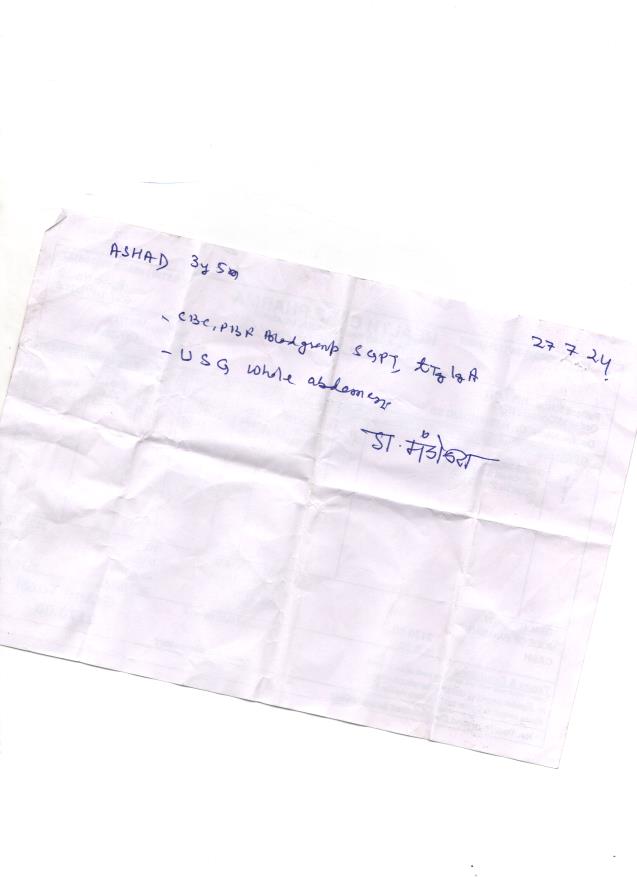 ASHAD 3y 5m
27 7 24
- CBC, PBF Blood group SGPT, tTg IgA
- USG whole abdomen
डा.